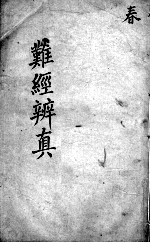 春
難經辨真